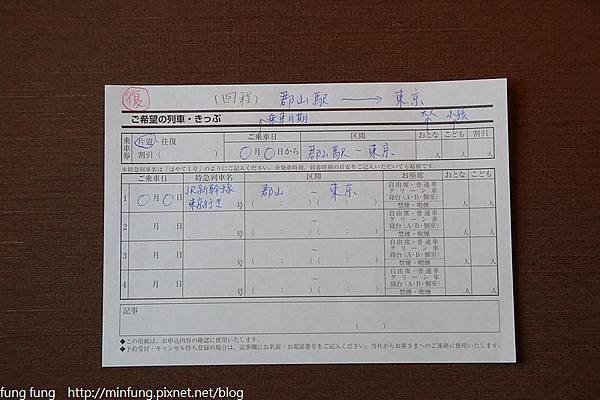 復 (回程) 郡山駅 → 東京
ご希望の列車・きっぷ 乘車日期 大人 小孩
乗車券 片道・往復 ご乗車日 区間 おとな こども 割引
割引( ) 〇月〇日から 郡山駅 ~ 東京 人 人
※特急列車名は「はやて1号」のようにご記入ください。※発車時刻、到着時刻の目安をご記入いただいても結構です。
ご乗車日 特急列車名 区間 お座席 おとな こども
1 〇月〇日 JR新幹線 東京行き 号 郡山 ~ 東京 ( : )( : ) 自由席・普通車 グリーン車 寝台(A・B・個室) 禁煙・喫煙 人 人
2 月 日 号 ~ ( : )( : ) 自由席・普通車 グリーン車 寝台(A・B・個室) 禁煙・喫煙 人 人
3 月 日 号 ~ ( : )( : ) 自由席・普通車 グリーン車 寝台(A・B・個室) 禁煙・喫煙 人 人
4 月 日 号 ~ ( : )( : ) 自由席・普通車 グリーン車 寝台(A・B・個室) 禁煙・喫煙 人 人
記事
( )
◆この用紙は、お申込内容の確認に使用いたします。
◆予約受付・キャンセル待ち登録の場合は、記事欄にお名前・お電話番号をご記入ください。当社からお客さまへのご連絡に使用いたします。
fung fung http://minfung.pixnet.net/blog